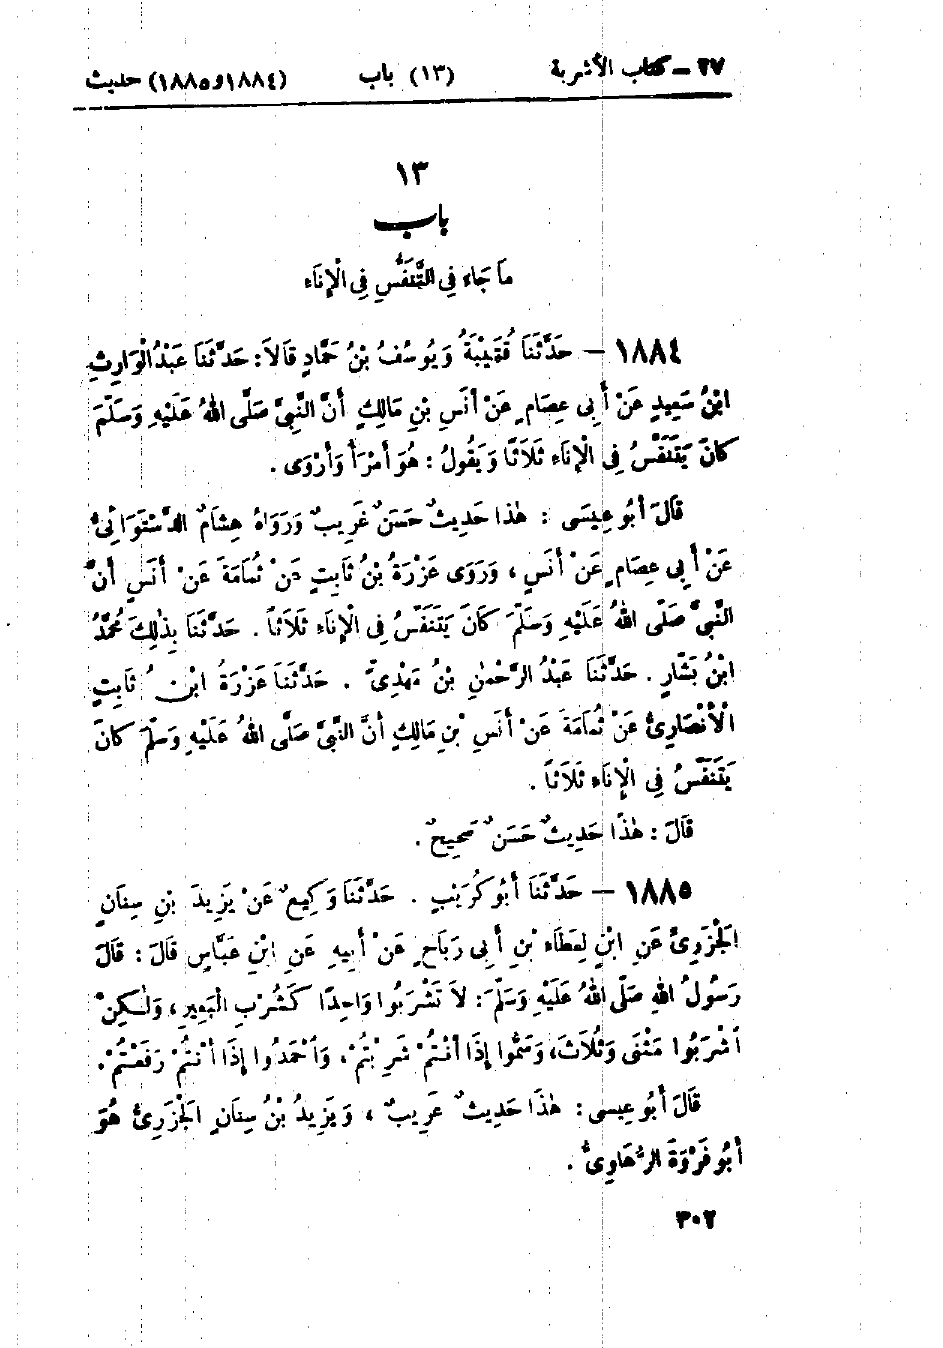 ٢٧ – كتاب الأشربة (١٣) باب (١٨٨٤و١٨٨٥) حديث
١٣
باب
مَا جَاءَ فِي التَّنَفُّسِ فِي الْإِنَاءِ
١٨٨٤ – حَدَّثَنَا قُتَيْبَةُ وَيُوسُفُ بْنُ حَمَّادٍ قَالَا: حَدَّثَنَا عَبْدُ الْوَارِثِ
ابْنُ سَعِيدٍ عَنْ أَبِي عِصَامٍ عَنْ أَنَسِ بْنِ مَالِكٍ أَنَّ النَّبِيَّ صَلَّى اللهُ عَلَيْهِ وَسَلَّمَ
كَانَ يَتَنَفَّسُ فِي الْإِنَاءِ ثَلَاثًا وَيَقُولُ : هُوَ أَمْرَأُ وَأَرْوَى .
قَالَ أَبُو عِيسَى : هٰذَا حَدِيثٌ حَسَنٌ غَرِيبٌ وَرَوَاهُ هِشَامٌ الدَّسْتَوَائِيُّ
عَنْ أَبِي عِصَامٍ عَنْ أَنَسٍ ، وَرَوَى عَزْرَةُ بْنُ ثَابِتٍ عَنْ ثُمَامَةَ عَنْ أَنَسٍ أَنَّ
النَّبِيَّ صَلَّى اللهُ عَلَيْهِ وَسَلَّمَ كَانَ يَتَنَفَّسُ فِي الْإِنَاءِ ثَلَاثاً . حَدَّثَنَا بِذٰلِكَ مُحَمَّدُ
ابْنُ بَشَّارٍ . حَدَّثَنَا عَبْدُ الرَّحْمٰنِ بْنُ مَهْدِيٍّ . حَدَّثَنَا عَزْرَةُ ابْنُ ثَابِتٍ
الْأَنْصَارِيُّ عَنْ ثُمَامَةَ عَنْ أَنَسِ بْنِ مَالِكٍ أَنَّ النَّبِيَّ صَلَّى اللهُ عَلَيْهِ وَسَلَّمَ كَانَ
يَتَنَفَّسُ فِي الْإِنَاءِ ثَلَاثاً .
قَالَ : هٰذَا حَدِيثٌ حَسَنٌ صَحِيحٌ .
١٨٨٥ – حَدَّثَنَا أَبُو كُرَيْبٍ . حَدَّثَنَا وَكِيعٌ عَنْ يَزِيدَ بْنِ سِنَانٍ
الْجَزَرِيِّ عَنِ ابْنٍ لِعَطَاءِ بْنِ أَبِي رَبَاحٍ عَنْ أَبِيهِ عَنِ ابْنِ عَبَّاسٍ قَالَ : قَالَ
رَسُولُ اللهِ صَلَّى اللهُ عَلَيْهِ وَسَلَّمَ : لَا تَشْرَبُوا وَاحِدًا كَشُرْبِ الْبَعِيرِ ، وَلٰكِنْ
اشْرَبُوا مَثْنَى وَثُلَاثَ، وَسَمُّوا إِذَا أَنْتُمْ شَرِبْتُمْ ، وَاحْمَدُوا إِذَا أَنْتُمْ رَفَعْتُمْ .
قَالَ أَبُو عِيسَى : هٰذَا حَدِيثٌ غَرِيبٌ ، وَيَزِيدُ بْنُ سِنَانٍ الْجَزَرِيُّ هُوَ
أَبُو فَرْوَةَ الرُّهَاوِيُّ .
٣٠٢